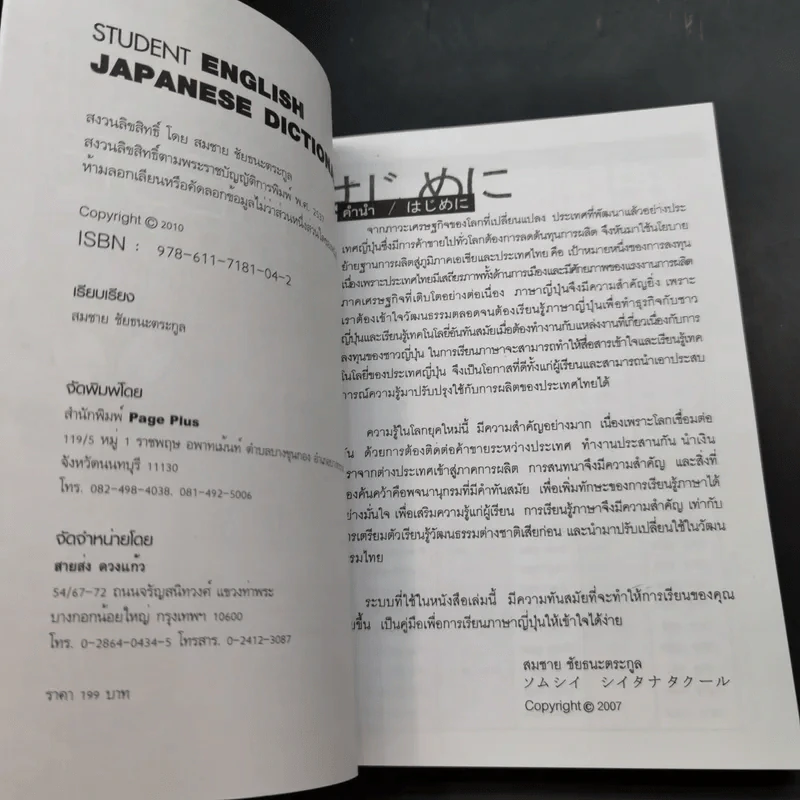 STUDENT ENGLISH
JAPANESE DICTIONA
สงวนลิขสิทธิ์ โดย สมชาย ชัยธนะตระกูล
สงวนลิขสิทธิ์ตามพระราชบัญญัติการพิมพ์ พ.ศ.
ห้ามลอกเลียนหรือคัดลอกข้อมูลไม่ว่าส่วนหนึ่งส่วนใด
Copyright © 2010
ISBN : 978-611-7181-04-2
เรียบเรียง
สมชาย ชัยธนะตระกูล
จัดพิมพ์โดย
สำนักพิมพ์ Page Plus
119/5 หมู่ 1 ราชพฤษ อพาทเม้นท์ ตำบลบางขุนกอง
จังหวัดนนทบุรี 11130
โทร. 082-498-4038, 081-492-5006
จัดจำหน่ายโดย
สายส่ง ดวงแก้ว
54/67-72 ถนนจรัญสนิทวงศ์ แขวงท่าพระ
บางกอกน้อยใหญ่ กรุงเทพฯ 10600
โทร. 0-2864-0434-5 โทรสาร. 0-2412-3087
ราคา 199 บาท
はじめに
คำนำ / はじめに
จากภาวะเศรษฐกิจของโลกที่เปลี่ยนแปลง ประเทศที่พัฒนาแล้วอย่างประ
เทศญี่ปุ่นซึ่งมีการค้าขายไปทั่วโลกต้องการลดต้นทุนการผลิต จึงหันมาใช้นโยบาย
ย้ายฐานการผลิตสู่ภูมิภาคเอเชียและประเทศไทย คือ เป้าหมายหนึ่งของการลงทุน
เนื่องเพราะประเทศไทยมีเสถียรภาพทั้งด้านการเมืองและมีศักยภาพของแรงงานการผลิต
ภาคเศรษฐกิจที่เติบโตอย่างต่อเนื่อง ภาษาญี่ปุ่นจึงมีความสำคัญยิ่ง เพราะ
เราต้องเข้าใจวัฒนธรรมตลอดจนต้องเรียนรู้ภาษาญี่ปุ่นเพื่อทำธุรกิจกับชาว
ญี่ปุ่นและเรียนรู้เทคโนโลยีอันทันสมัยเมื่อต้องทำงานกับแหล่งงานที่เกี่ยวเนื่องกับการ
ลงทุนของชาวญี่ปุ่น ในการเรียนภาษาจะสามารถทำให้สื่อสารเข้าใจและเรียนรู้เทค
โนโลยีของประเทศญี่ปุ่น จึงเป็นโอกาสที่ดีทั้งแก่ผู้เรียนและสามารถนำเอาประสบ
การณ์ความรู้มาปรับปรุงใช้กับการผลิตของประเทศไทยได้
ความรู้ในโลกยุคใหม่นี้ มีความสำคัญอย่างมาก เนื่องเพราะโลกเชื่อมต่อ
กัน ด้วยการต้องติดต่อค้าขายระหว่างประเทศ ทำงานประสานกัน นำเงิน
ตราจากต่างประเทศเข้าสู่ภาคการผลิต การสนทนาจึงมีความสำคัญ และสิ่งที่
องค้นคว้าคือพจนานุกรมที่มีคำทันสมัย เพื่อเพิ่มทักษะของการเรียนรู้ภาษาได้
ย่างมั่นใจ เพื่อเสริมความรู้แก่ผู้เรียน การเรียนรู้ภาษาจึงมีความสำคัญ เท่ากับ
การเตรียมตัวเรียนรู้วัฒนธรรมต่างชาติเสียก่อน และนำมาปรับเปลี่ยนใช้ในวัฒน
รรมไทย
ระบบที่ใช้ในหนังสือเล่มนี้ มีความทันสมัยที่จะทำให้การเรียนของคุณ
ยขึ้น เป็นคู่มือเพื่อการเรียนภาษาญี่ปุ่นให้เข้าใจได้ง่าย
สมชาย ชัยธนะตระกูล
ソムシイ シイタナタクール
Copyright © 2007